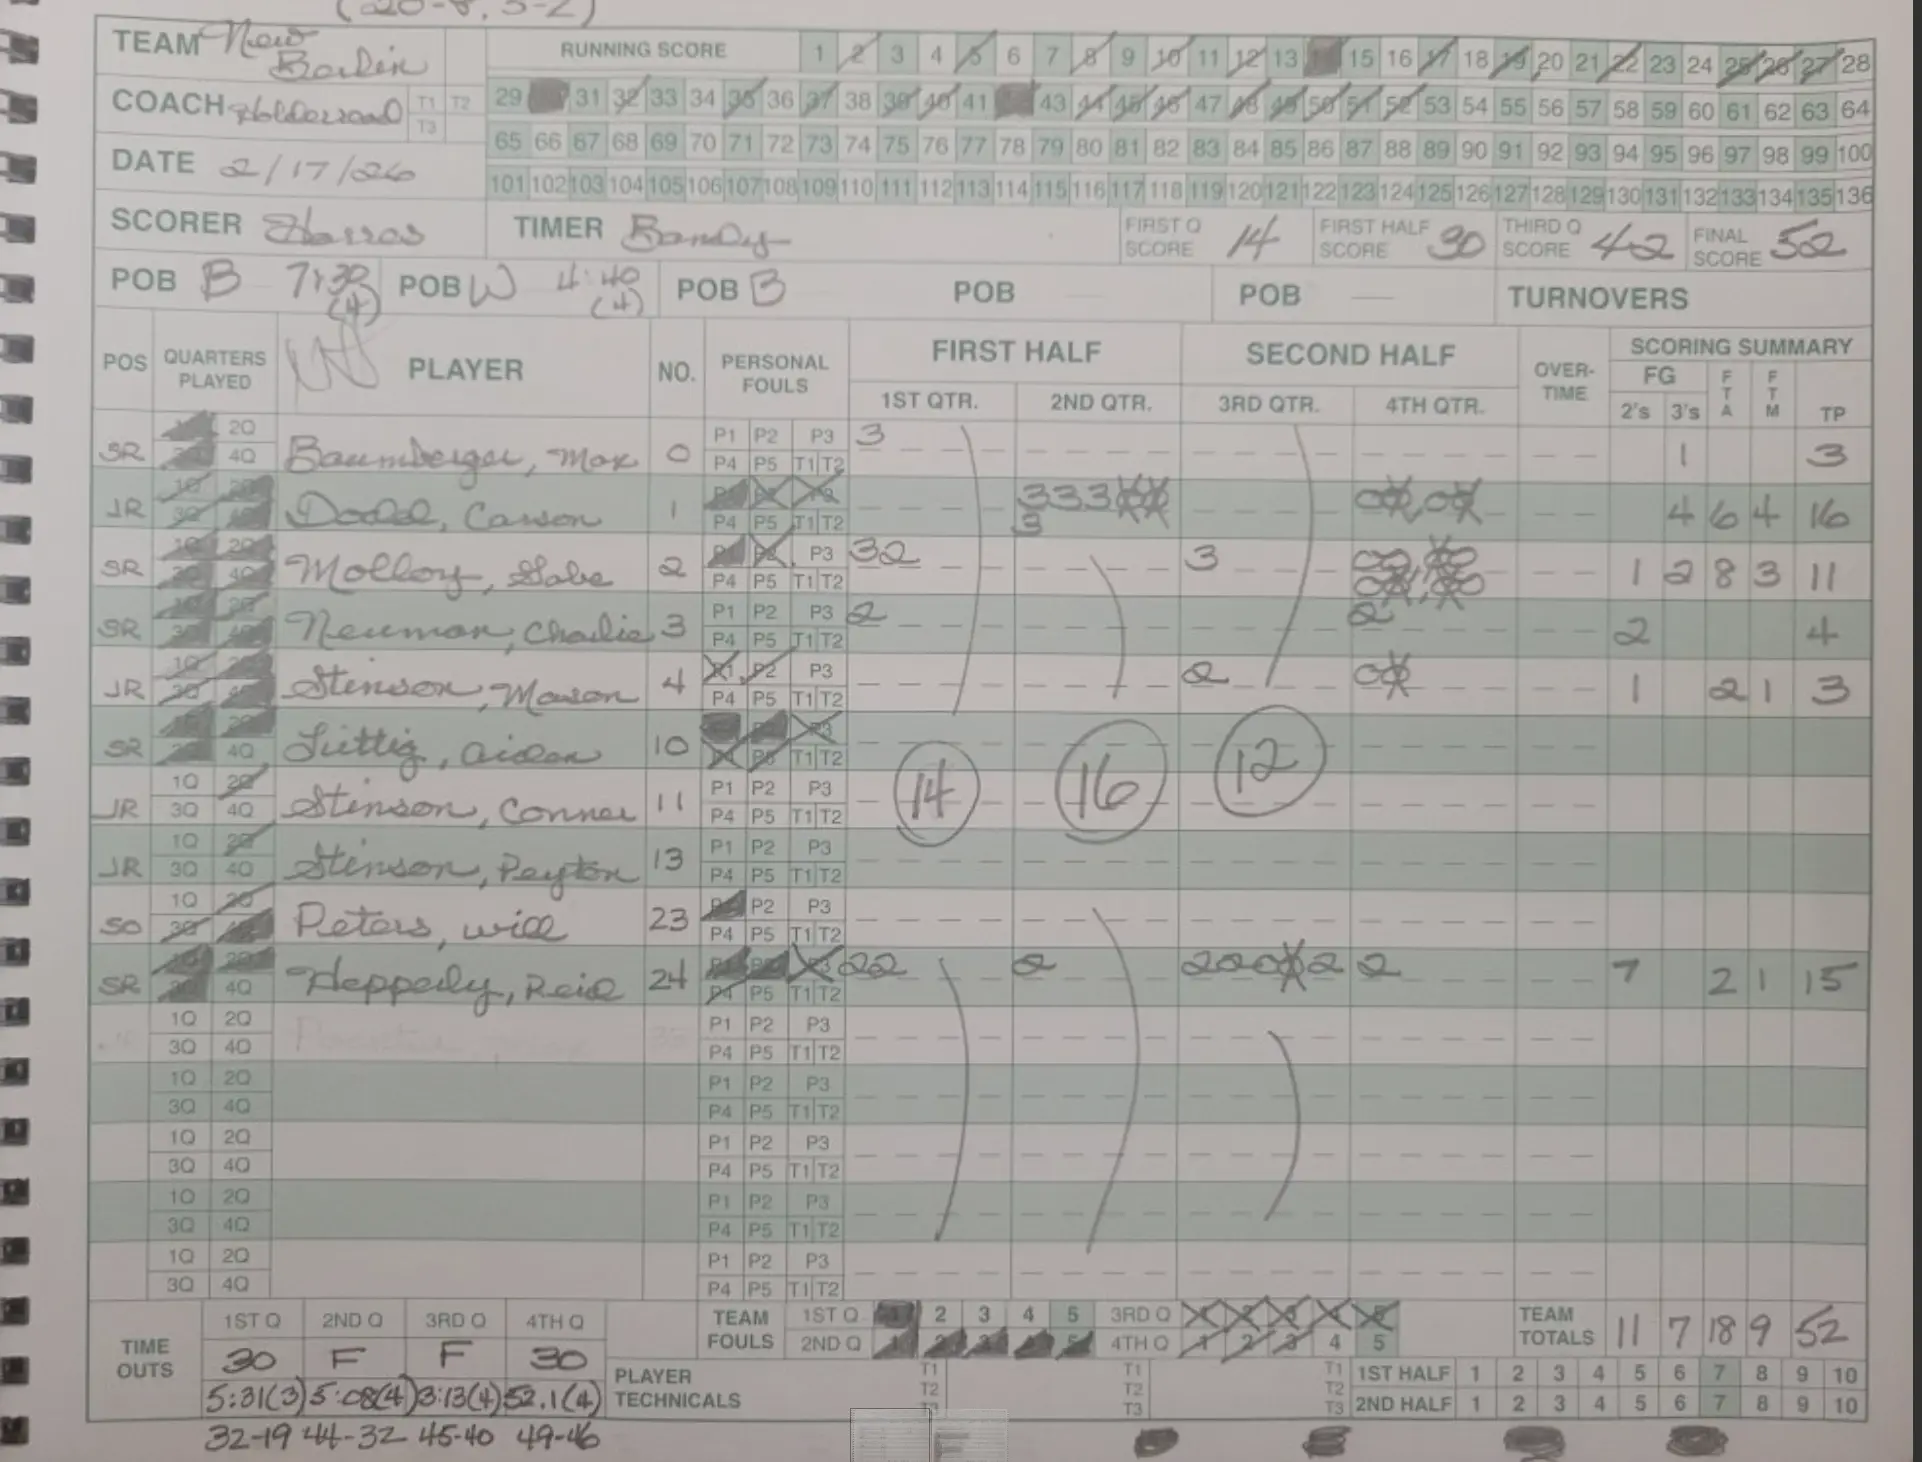 (20-8, 5-2)
TEAM New Berlin
RUNNING SCORE 1 2 3 4 5 6 7 8 9 10 11 12 13 15 16 17 18 19 20 21 22 23 24 25 26 27 28
COACH T1 T2 T3
29 31 32 33 34 35 36 37 38 39 40 41 43 44 45 46 47 48 49 50 51 52 53 54 55 56 57 58 59 60 61 62 63 64
65 66 67 68 69 70 71 72 73 74 75 76 77 78 79 80 81 82 83 84 85 86 87 88 89 90 91 92 93 94 95 96 97 98 99 100
DATE 2/17/26
101 102 103 104 105 106 107 108 109 110 111 112 113 114 115 116 117 118 119 120 121 122 123 124 125 126 127 128 129 130 131 132 133 134 135 136
SCORER Harros TIMER Bandy FIRST Q SCORE 14 FIRST HALF SCORE 30 THIRD Q SCORE 42 FINAL SCORE 52
POB B 7:30 (4) POB W 4:40 (4) POB B POB — POB — TURNOVERS
POS QUARTERS PLAYED PLAYER NO. PERSONAL FOULS FIRST HALF SECOND HALF OVER-TIME SCORING SUMMARY
1ST QTR. 2ND QTR. 3RD QTR. 4TH QTR. FG 2's 3's FTA FTM TP
SR 2Q 4Q Baumberger, Max 0 P1 P2 P3 P4 P5 T1 T2 3 1 3
JR 1Q 3Q Dodd, Carson 1 P4 P5 T1 T2 333 3 4 6 4 16
SR Molloy, Gabe 2 P3 P4 P5 T1 T2 32 3 1 2 8 3 11
SR Neuman, Charlie 3 P1 P2 P3 P4 P5 T1 T2 2 2 2 4
JR 1Q 3Q Stinson, Mason 4 P1 P2 P3 P4 P5 T1 T2 2 1 2 1 3
SR 4Q Luttig, Aiden 10 P3 T1 T2
JR 1Q 2Q 3Q 4Q Stinson, Conner 11 P1 P2 P3 P4 P5 T1 T2
14 16 12
JR 1Q 2Q 3Q 4Q Stinson, Peyton 13 P1 P2 P3 P4 P5 T1 T2
SO 1Q 2Q 3Q Peters, Will 23 P2 P3 P4 P5 T1 T2
SR 4Q Hepperly, Reid 24 P4 P5 T1 T2 22 2 2 2 2 7 2 1 15
1Q 2Q 3Q 4Q P1 P2 P3 P4 P5 T1 T2
1Q 2Q 3Q 4Q P1 P2 P3 P4 P5 T1 T2
1Q 2Q 3Q 4Q P1 P2 P3 P4 P5 T1 T2
1Q 2Q 3Q 4Q P1 P2 P3 P4 P5 T1 T2
1Q 2Q 3Q 4Q P1 P2 P3 P4 P5 T1 T2
TIME OUTS 1ST Q 2ND Q 3RD Q 4TH Q
30 F F 30
5:31(3) 5:08(4) 3:13(4) 52.1(4)
32-19 44-32 45-40 49-46
TEAM FOULS 1ST Q 1 2 3 4 5 3RD Q 1 2 3 4 5
2ND Q 1 2 3 4 5 4TH Q 1 2 3 4 5
TEAM TOTALS 11 7 18 9 52
PLAYER TECHNICALS T1 T2 T3 T1 T2 T3 T1 T2 T3
1ST HALF 1 2 3 4 5 6 7 8 9 10
2ND HALF 1 2 3 4 5 6 7 8 9 10